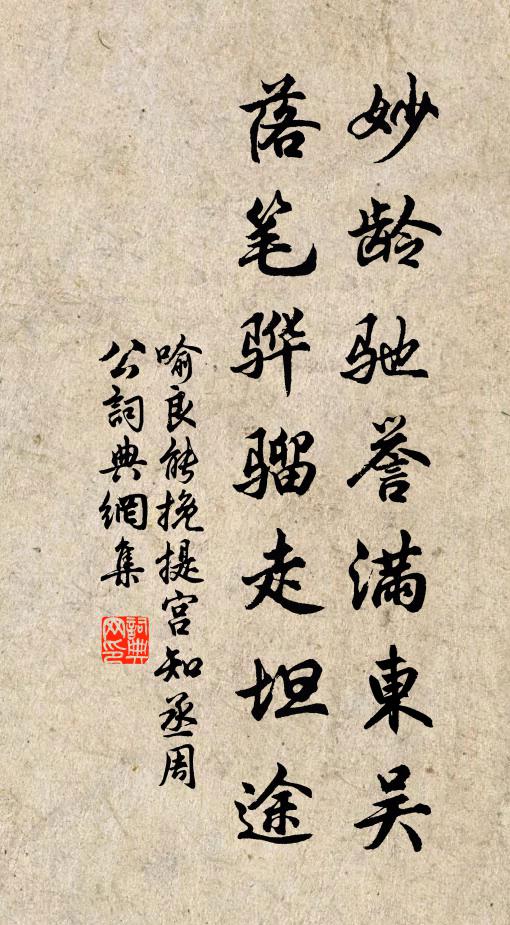 妙龄驰誉满東吴
落笔骅骝走坦途
喻良能挽提宫知丞周
公詞典網集
詞典网印